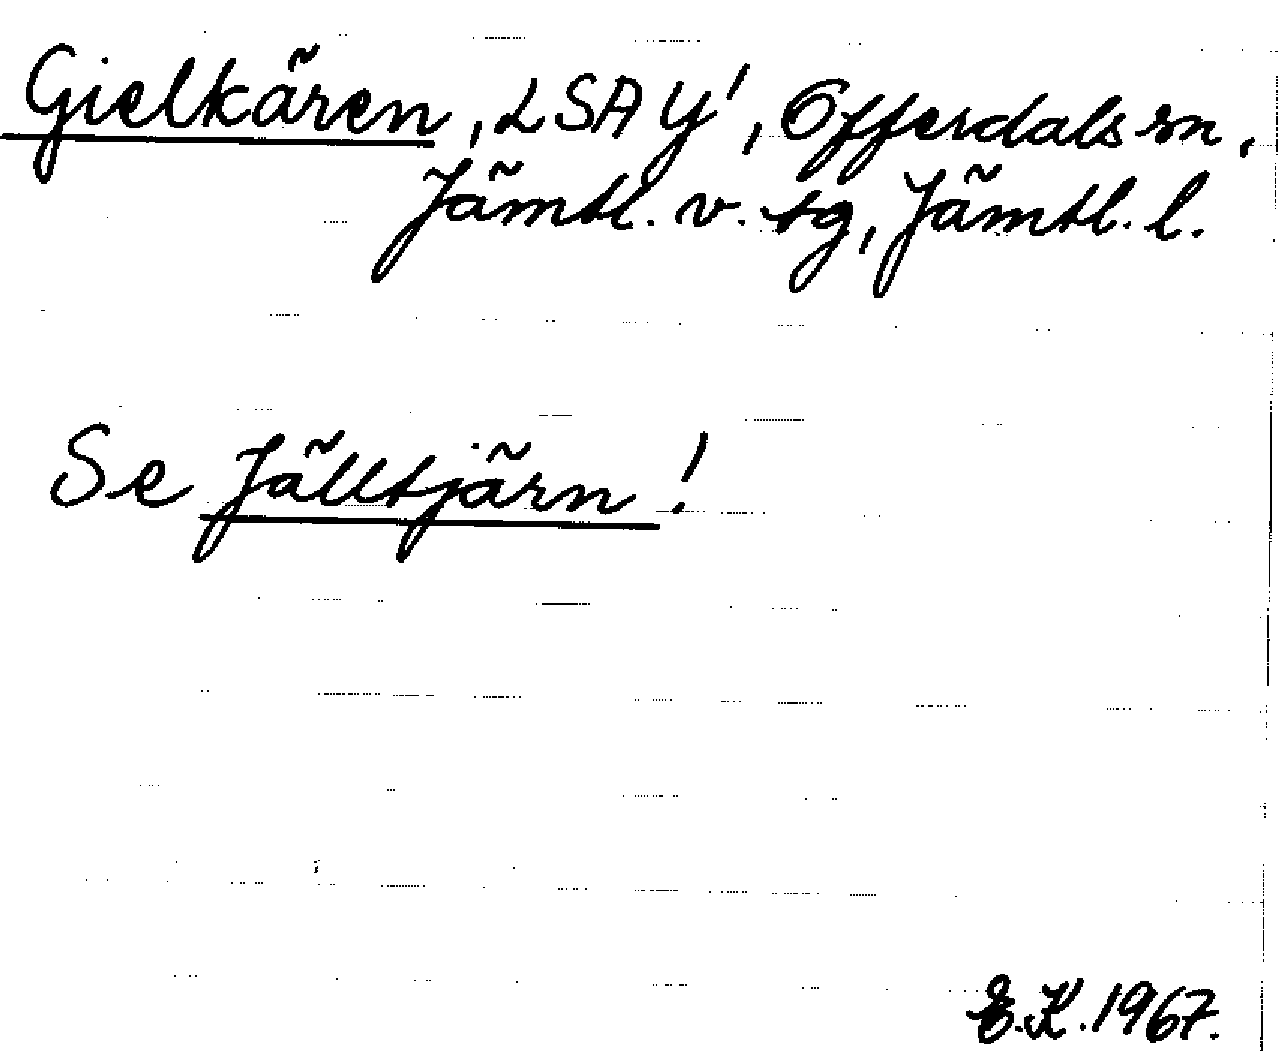 Gielkären, LSA Y', Offerdals sn,
Jämtl. v. tg, Jämtl. l.
Se Jälltjärn!
E.K. 1967.